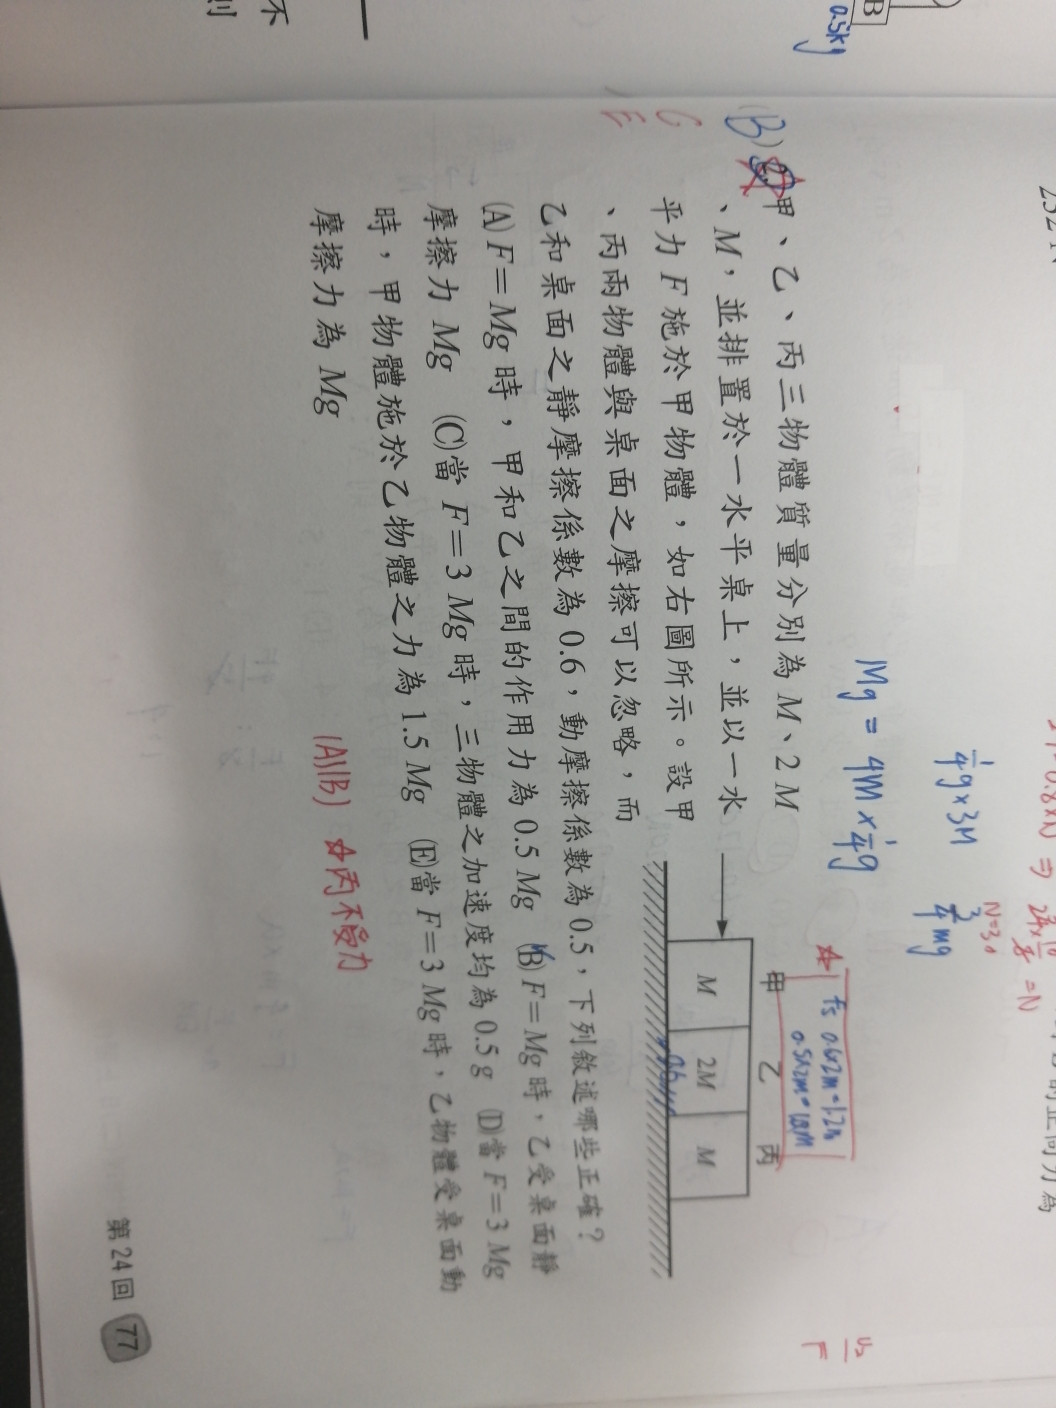 不
則
B
0.5kg
1/4 g×3M
3/4 mg
Mg = 4M × 1/4 g
N=3.0
(B)
C
E
甲、乙、丙三物體質量分別為 M、2 M
、M,並排置於一水平桌上,並以一水
平力 F 施於甲物體,如右圖所示。設甲
、丙兩物體與桌面之摩擦可以忽略,而
乙和桌面之靜摩擦係數為 0.6,動摩擦係數為 0.5,下列敘述哪些正確?
(A) F=Mg 時,甲和乙之間的作用力為 0.5 Mg (B) F=Mg 時,乙受桌面靜
摩擦力 Mg (C)當 F=3 Mg 時,三物體之加速度均為 0.5 g (D)當 F=3 Mg
時,甲物體施於乙物體之力為 1.5 Mg (E)當 F=3 Mg 時,乙物體受桌面動
摩擦力為 Mg
fs 0.6×2m=1.2m
甲 乙 丙
M 2M M
(A)(B) ☆丙不受力
第 24 回 77